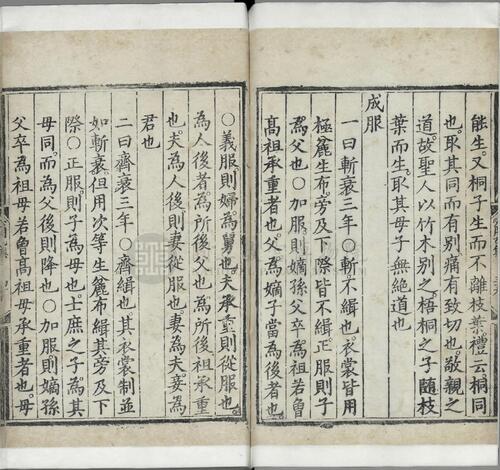 能生又桐子生而不離枝葉禮云桐同
也。取其同而有別痛有致切也。敬親之
道。故聖人以竹木別之。梧桐之子隨枝
葉而生。取其母子無絶道也
成服
一曰斬衰三年○斬不緝也。衣裳皆用
極麤生布。旁及下際皆不緝也正服則子
為父也○加服則嫡孫父卒為祖若曾
高祖承重者也。父為嫡子當為後者也
○義服則婦為舅也。夫承重則從服也。
為人後者為所後父也。為所後祖承重
也。夫為人後則妻從服也。妻為夫。妾為
君也
二曰齊衰三年○齊緝也其衣裳制並
如斬衰。但用次等生麤布緝其旁及下
際○正服則子為母也。士庶之子為其
母同。而為父後則降也○加服則嫡孫
父卒為祖母若曾高祖母承重者也。母